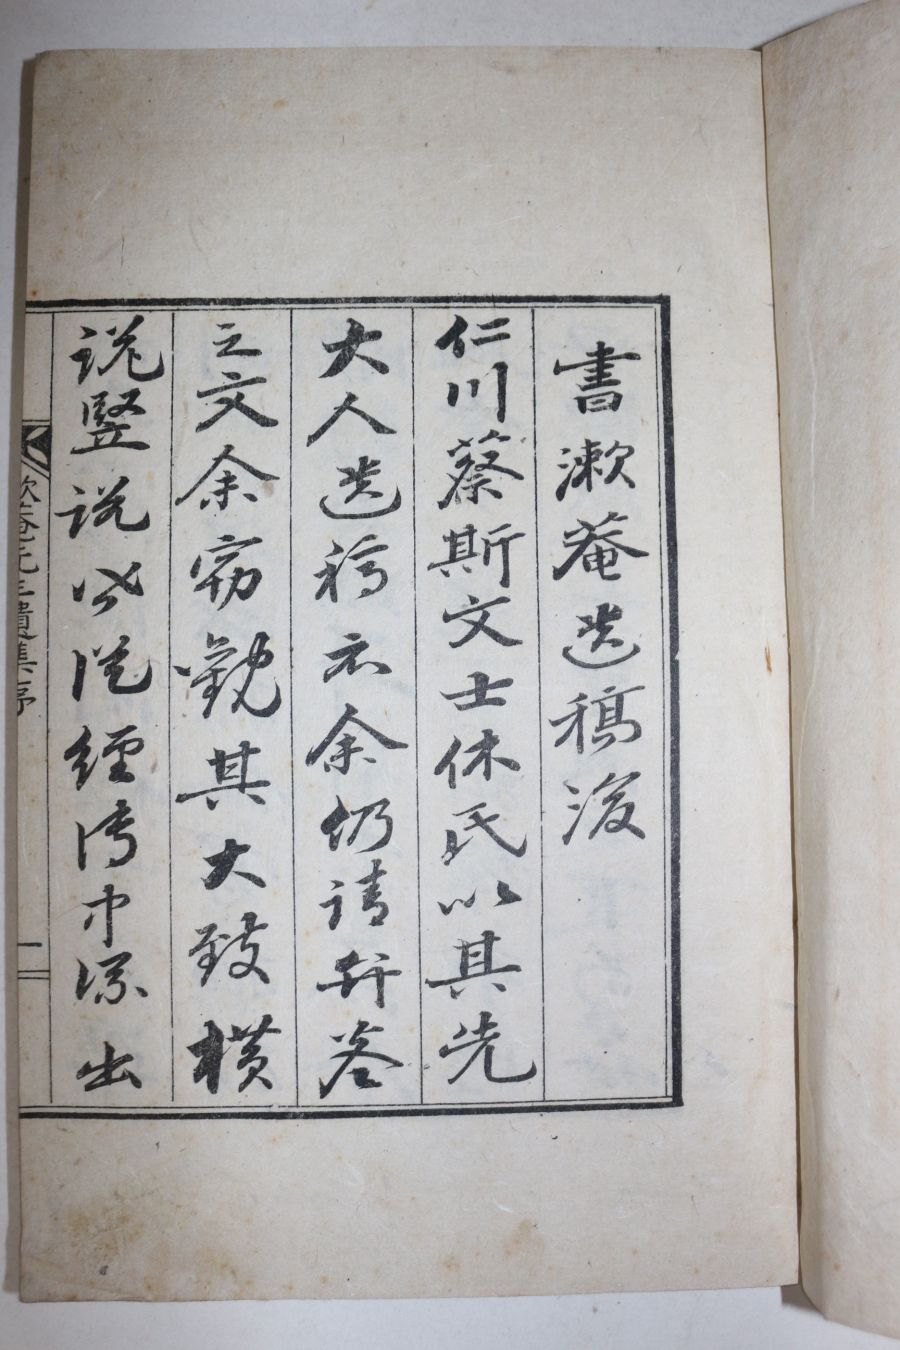 書漱菴遺稿後
仁川蔡斯文士休氏以其先
大人遺稿示余仍請弁卷
之文余窃觀其大致橫
說竪說皆從經傳中流出
漱菴先生遺集序
一